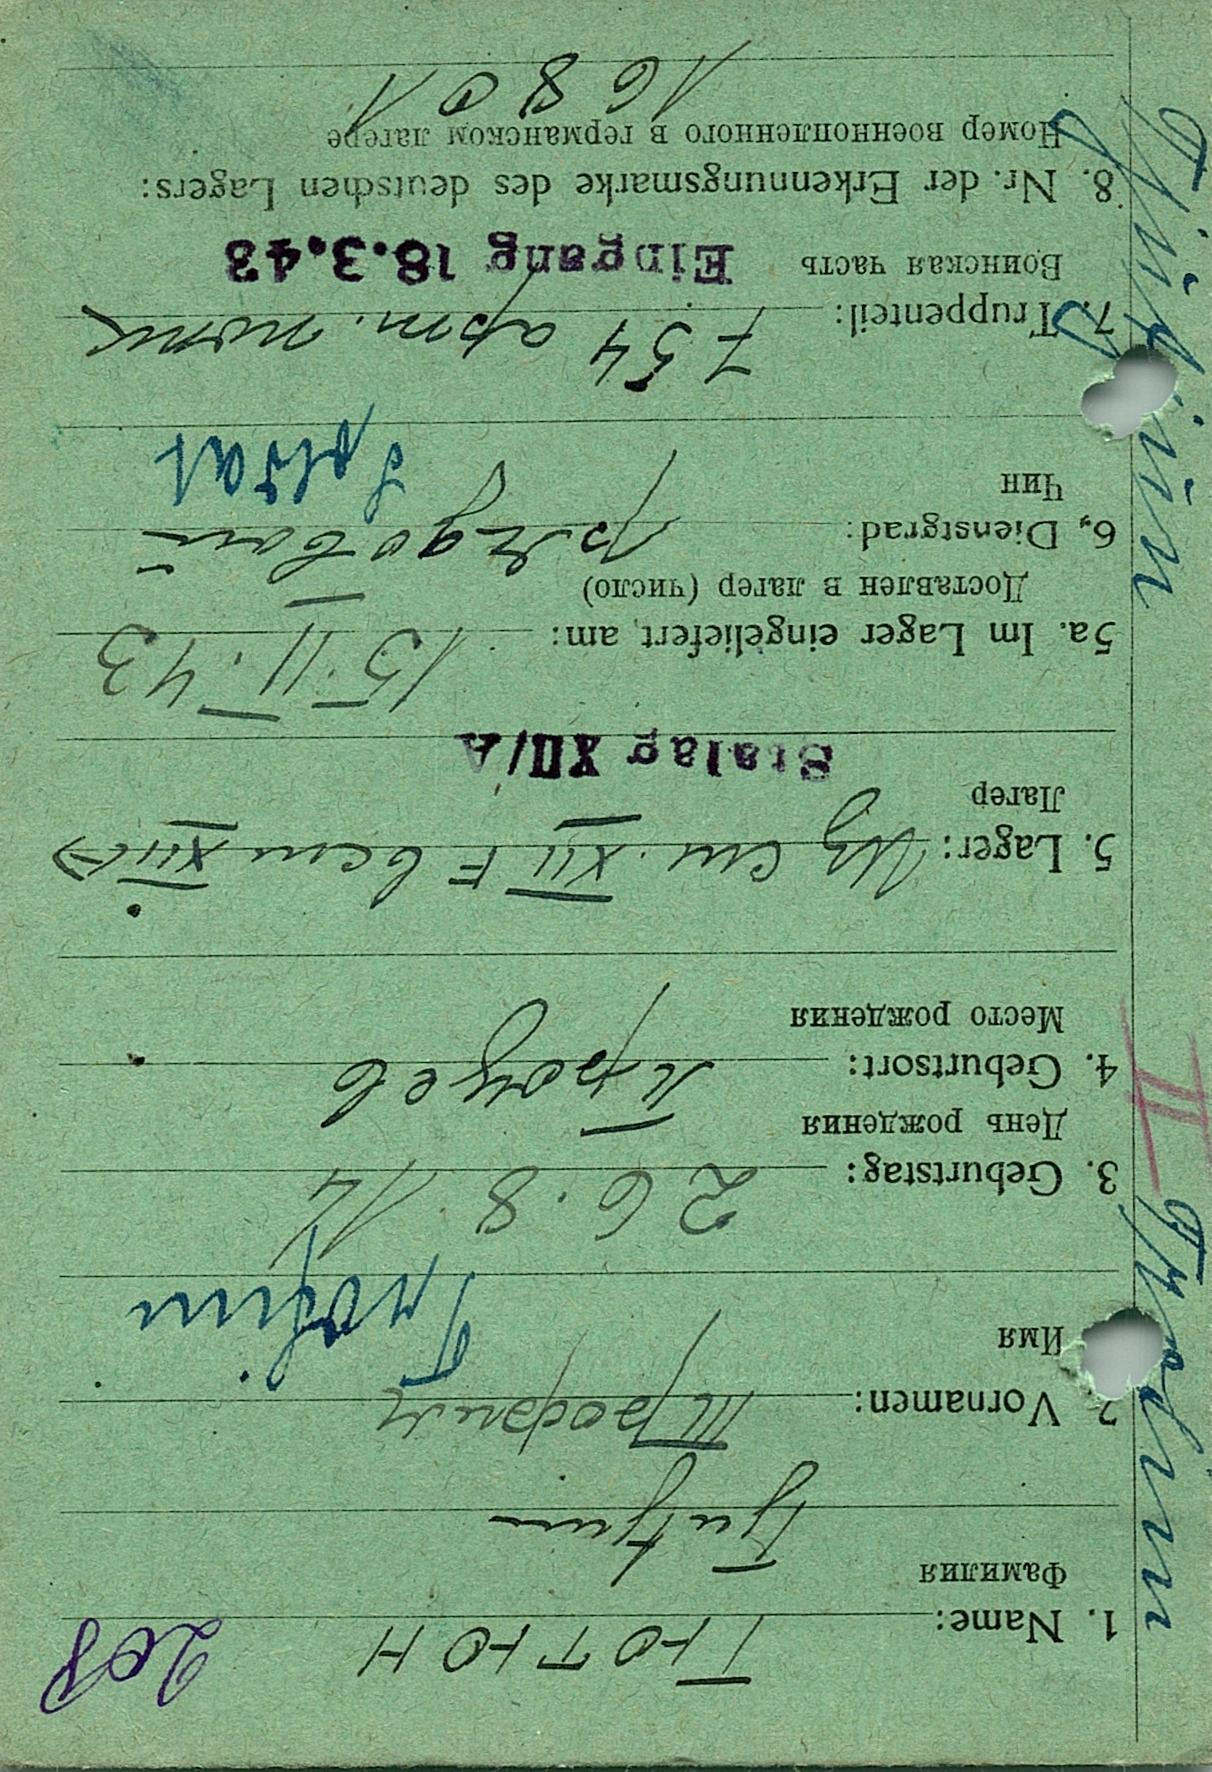 208
1. Name: ТЮТЮН
Фамилия
Tjutjun
2. Vornamen: Трофим
Имя
Trofim
3. Geburtstag: 26.8.14
День рождения
4. Geburtsort:
Место рождения
5. Lager: Из шт. XII F в шт XII
Лагер
Stalag XII/A
5a. Im Lager eingeliefert, am: 15.II.43
Доставлен в лагер (число)
6. Dienstgrad: рядовой
Чин
Soldat
7. Truppenteil: 754 арт. полк
Воинская часть
Eingang 18.3.43
8. Nr. der Erkennungsmarke des deutschen Lagers:
Номер военнопленного в германском лагере
16801
Trofim
II